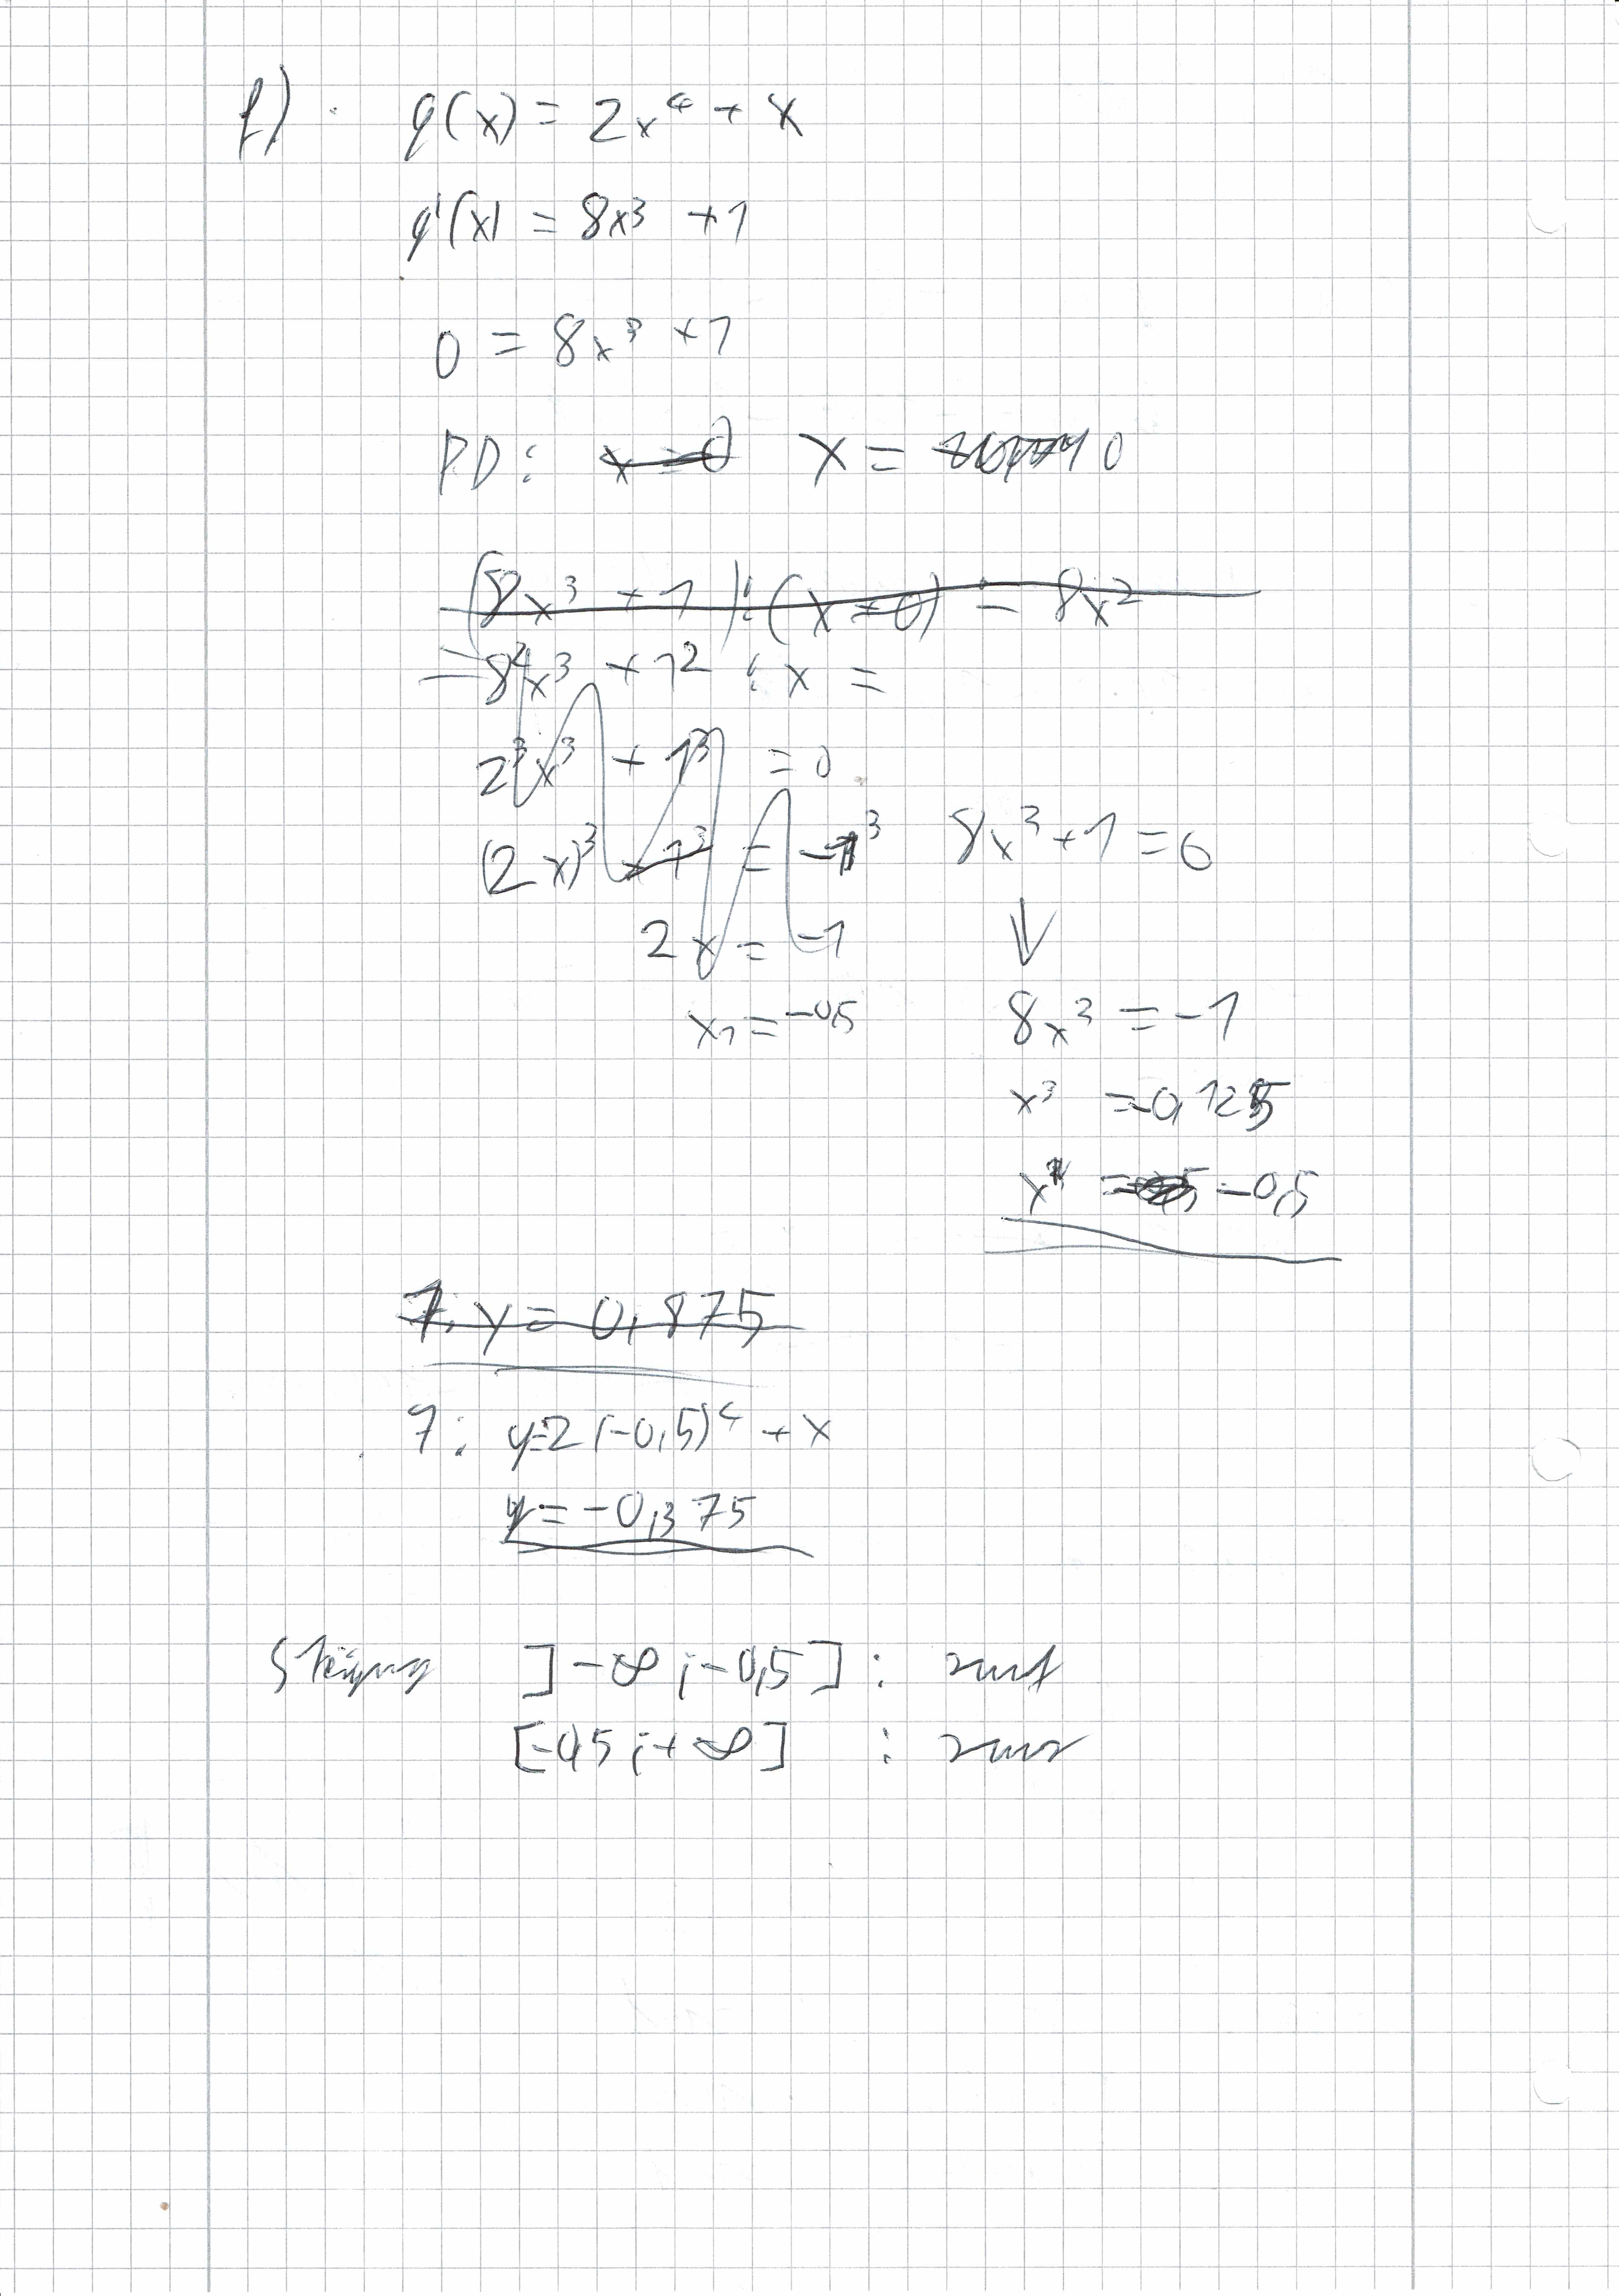 f) . g(x) = 2x⁴ + x
g'(x) = 8x³ + 1
0 = 8x³ + 1
PD: x = 0 x = 0
(8x³ + 1) : (x - 0) = 8x²
x³ + 1² : x =
2³x³ + 1³ = 0
(2x)³ + 1³ = -1³
2x = -1
x₁ = -0,5
8x³ + 1 = 0
↓
8x³ = -1
x³ = -0,125
x = -0,5
1. y = 0,875
1: y=2(-0,5)⁴ + x
y = -0,375
Steigung ]-∞;-0,5] :
[-0,5;+∞] :